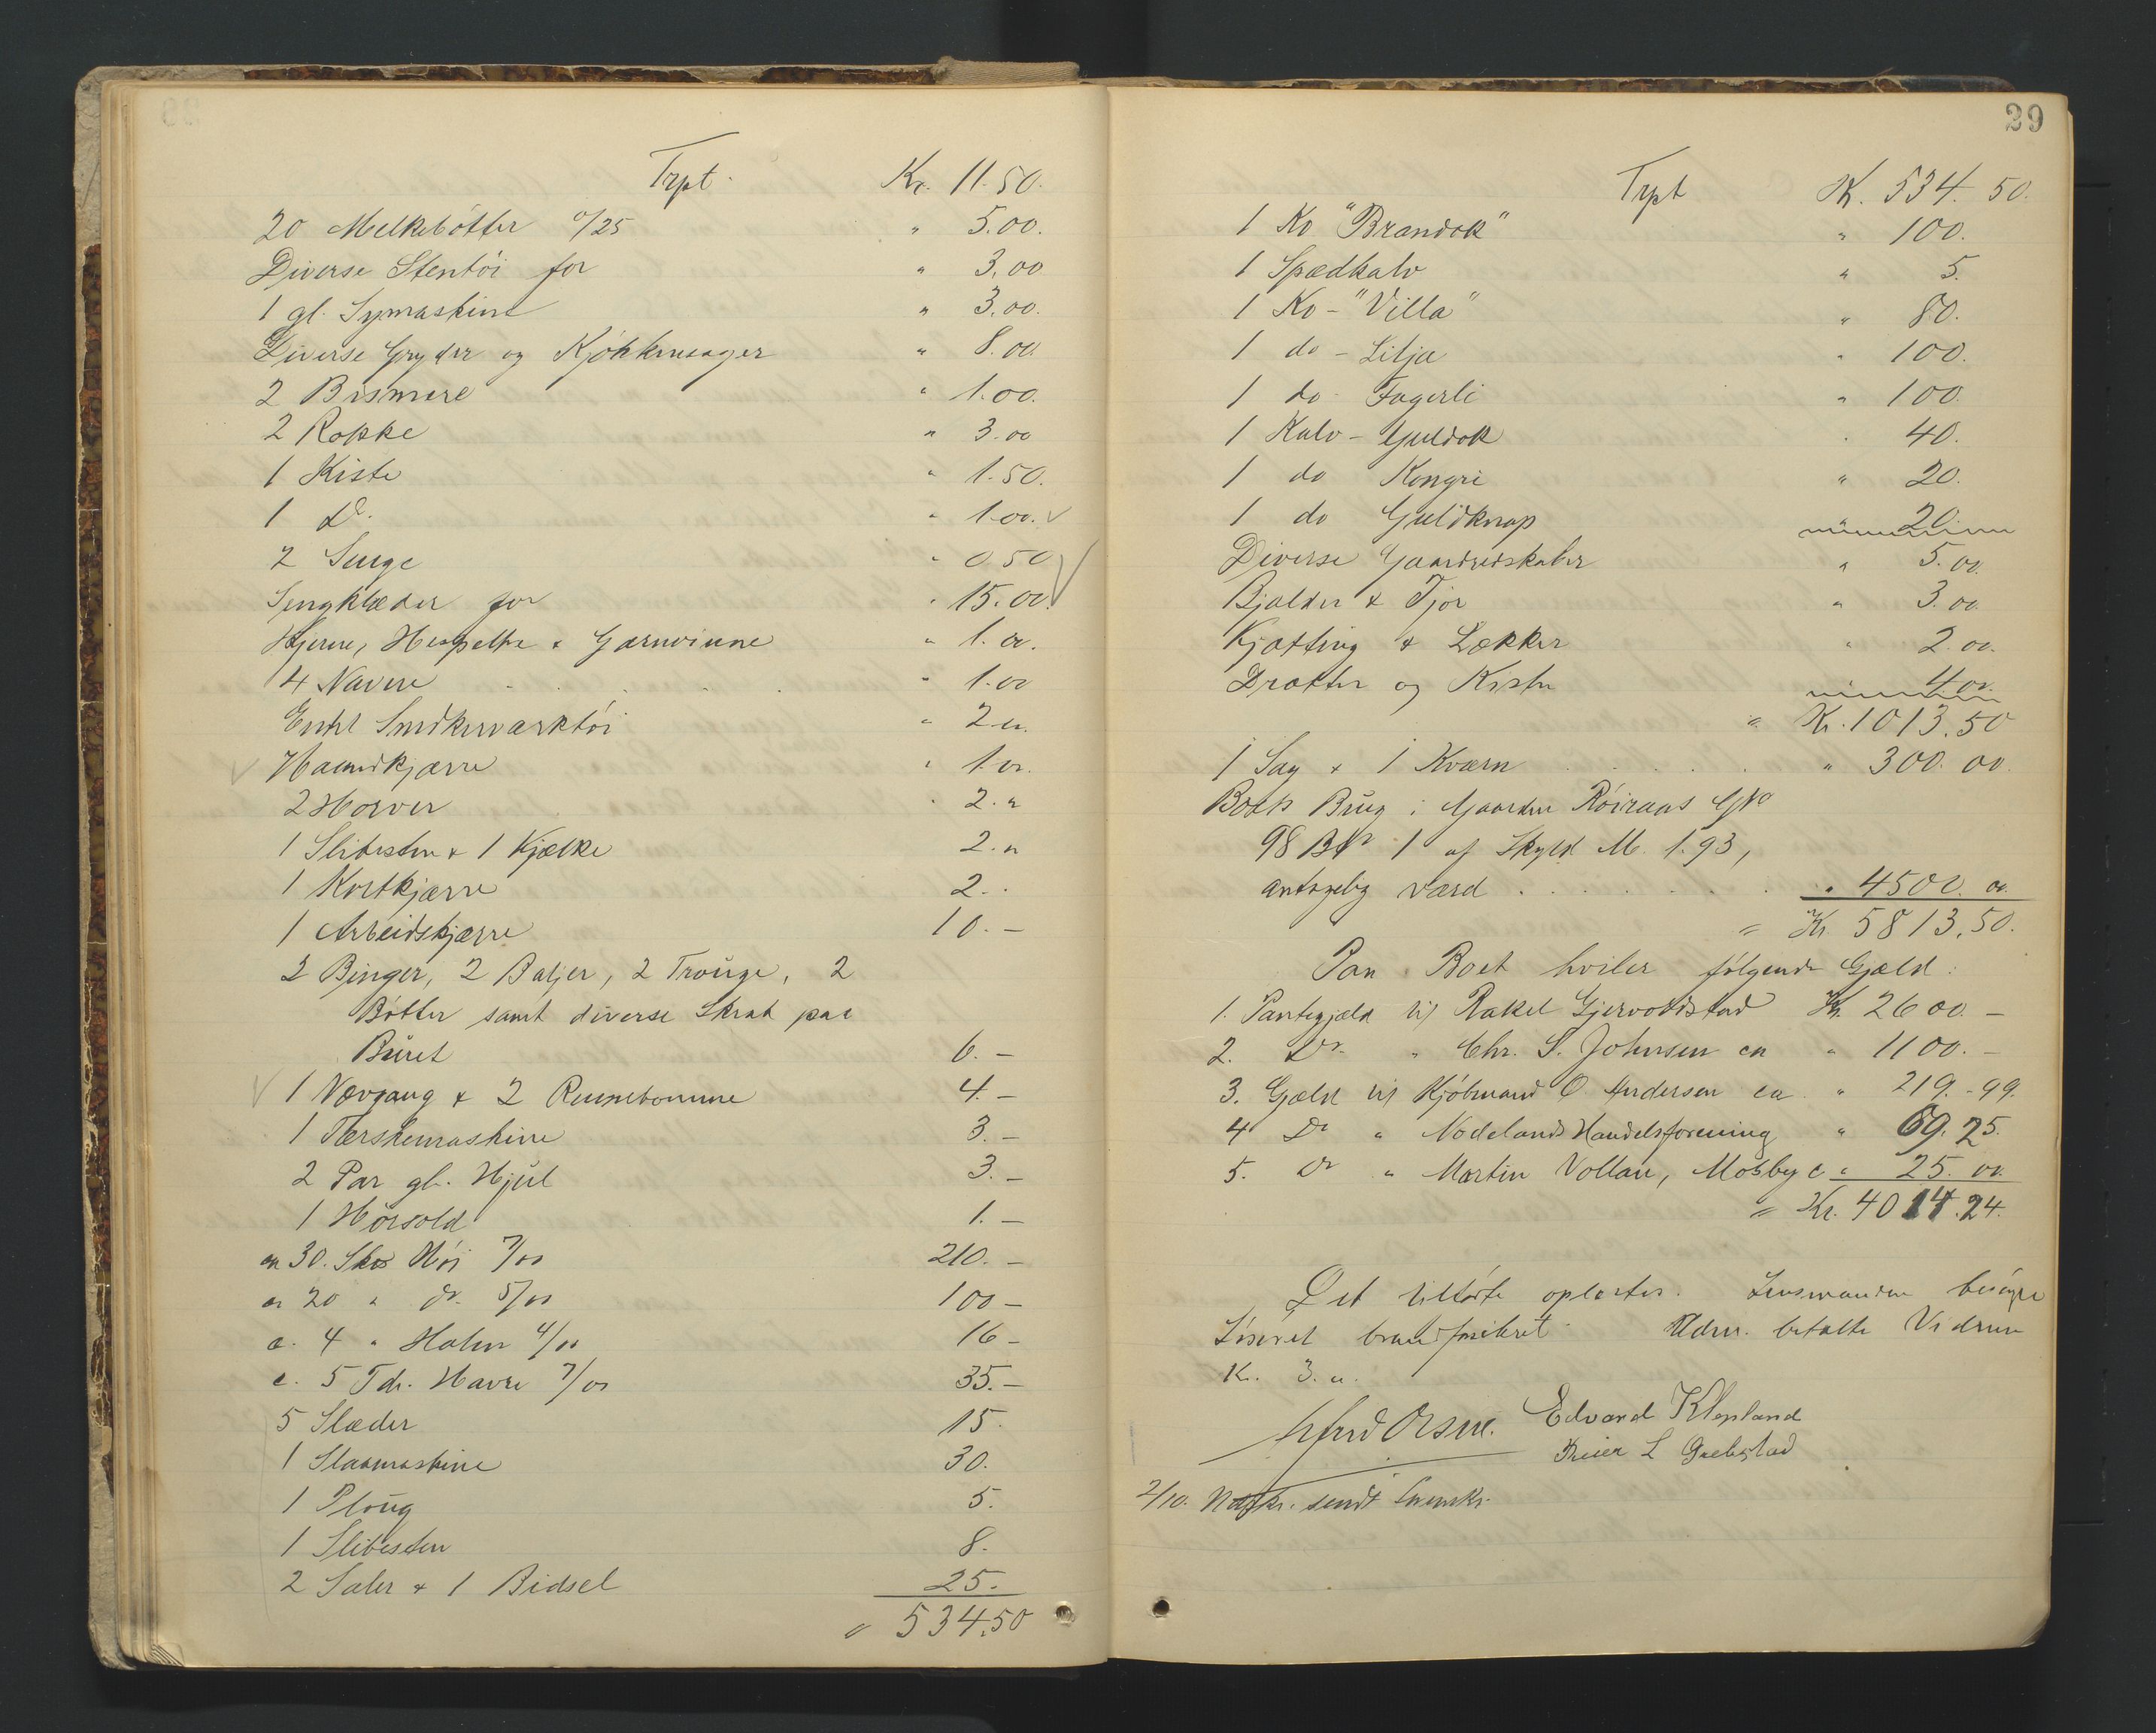 Trpt. Kr. 11.50.
20 Melkebötter a/25 " 5.00.
Diverse Stentöi for " 3.00
1 gl. Symaskine " 3.00.
Diverse Gryder og Kjökkensager " 8.00.
2 Bismere " 1.00.
2 Rokke " 3.00
1 Kiste " 1.50.
1 Do. " 1.00.
2 Senge " 0 50
Sengklæder for " 15.00.
Kjerne, Hespetre & Garnvinne " 1.00.
4 Navere " 1.00
Enkl Snedkerværktöi " 2.00.
Haandkjærre " 1.00.
2 Horver " 2. "
1 Slibesten & 1 Kjælke 2. "
1 Kostkjærre 2. .
1 Arbeidskjærre 10. –
2 Binger, 2 Baljer, 2 Trouge, 2
Bötter samt diverse Skrab paa
Buret 6. –
1 Vævgang & 2 Rennebomme 4. –
1 Tærskemaskine 3. –
2 Par gl. Hjul 3. –
1 Hörsold 1. –
ca 30. Skp Höi 7/00 210. –
ca 20 " do. 5/00 100 –
c. 4 " Halm 4/00 16 –
c. 5 Tdr. Havre 7/00 35. –
5 Slæder 15.
1 Slaamaskine 30.
1 Ploug 5.
1 Slibesten 8.
2 Saler & 1 Bidsel 25.
534.50
29
Trpt K. 534. 50.
1 Ko "Brandok" " 100.
1 Spædkalv " 5.
1 Ko - "Villa" " 80.
1 do - Lilja " 100.
1 do - Fagerli " 100.
1 Kalv - Guldok " 40.
1 do Kongri " 20.
1 do Guldknap 20.
Diverse Gaardredskaber " 5.00.
Bjælder & Tjor " 3.00.
Kjætting & Lækker " 2.00.
Drætter og Kister 4.00.
= Kr. 1013.50
1 Sag & 1 Kværn " 300.00.
Boets Brug i Gaarden Röiraas GNo
98 BNo 1 af Skyld M. 1.93,
antagelig værd " 4500. 00.
= Kr 5813.50.
Paa Boet hviler fölgende Gjæld:
1. Pantegjæld til Rakel Gjervoldstad Kr. 2600. –
2. Do. " Chr. S. Johnsen ca " 1100. –
3. Gjæld til Kjöbmand O. Andersen ca. " 219. - 99.
4 Do " Nodelands Handelsforening " 69.25.
5. Do " Martin Vollan, Mosby c " 25. 00.
= Kr. 4014.24.
Det tilförte oplæstes. Lensmanden besörger
Lösöret brandforsikret. Udm. betalte Vidnene
Kr. 3. "
Edvard Klepland
Peder L Grebstad
2/10. sendt